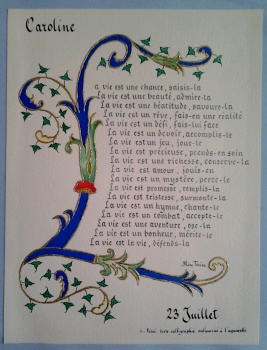 Caroline
La vie est une chance, saisis-la
La vie est une beauté, admire-la
La vie est une béatitude, savoure-la
La vie est un rêve, fais-en une réalité
La vie est un défi, fais-lui face
La vie est un devoir, accomplis-le
La vie est un jeu, joue-le
La vie est précieuse, prends-en soin
La vie est une richesse, conserve-la
La vie est amour, jouis-en
La vie est un mystère, perce-le
La vie est promesse, remplis-la
La vie est tristesse, surmonte-la
La vie est un hymne, chante-le
La vie est un combat, accepte-le
La vie est une aventure, ose-la
La vie est un bonheur, mérite-le
La vie est la vie, défends-la
Mère Teresa
23 Juillet
calligraphie à l'aquarelle